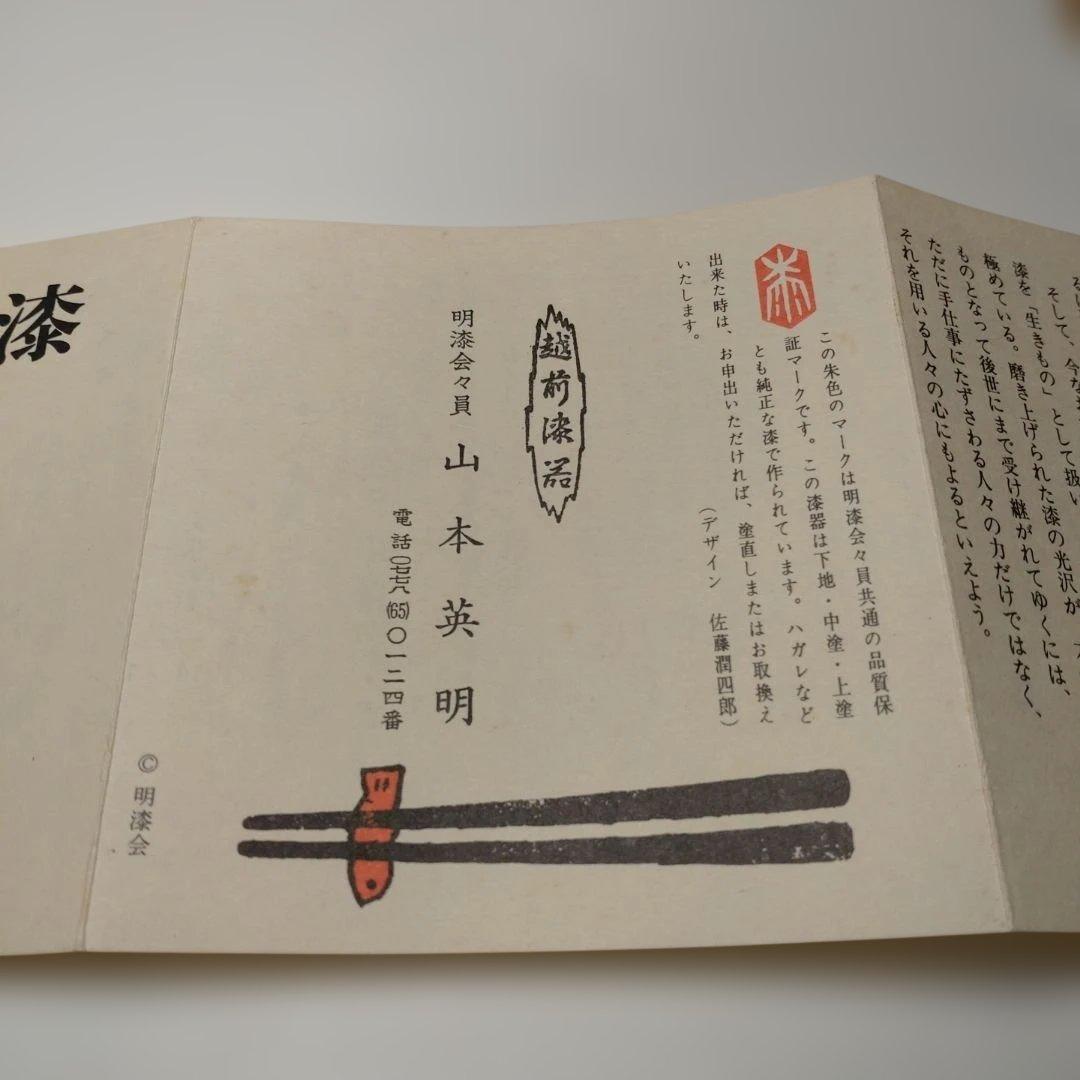 そして、今な
漆を「生きもの」として扱い
極めている。磨き上げられた漆の光沢が
ものとなって後世にまで受け継がれてゆくには、
ただに手仕事にたずさわる人々の力だけではなく、
それを用いる人々の心にもよるといえよう。
この朱色のマークは明漆会々員共通の品質保
証マークです。この漆器は下地・中塗・上塗
とも純正な漆で作られています。ハガレなど
出来た時は、お申出いただければ、塗直しまたはお取換え
いたします。
(デザイン 佐藤潤四郎)
越前漆器
明漆会々員 山本英明
電話〇七七八(65)〇一二四番
© 明漆会
漆